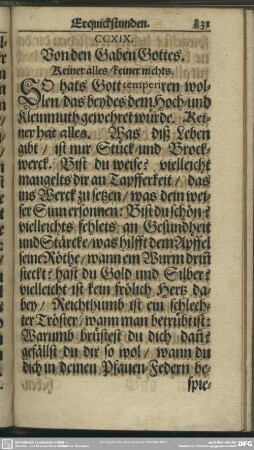 Erquickstunden. 831
CCXIX.
Von den Gaben Gottes.
Keiner alles / keiner nichts.
SO hats Gott temperiren wol-
len / das beydes dem Hoch- und
Kleinmuth gewehret würde. Kei-
ner hat alles. Was diß Leben
gibt / ist nur Stück- und Brock-
werck. Bist du weise? vielleicht
mangelts dir an Tapfferkeit / das
ins Werck zu setzen / was dein wei-
ser Sinn ersonnen: Bist du schön?
vielleichts fehlets an Gesundheit
und Stärcke / was hilfft dem Apffel
seine Röthe / wann ein Wurm drin
steckt? hast du Gold und Silber?
vielleicht ist kein frölich Hertz da-
bey / Reichthumb ist ein schlech-
ter Tröster / wann man betrübt ist:
Warumb brüstest du dich dañ?
gefällst du dir so wol / wann du
dich in deinen Pfauen-Federn be-
spie-